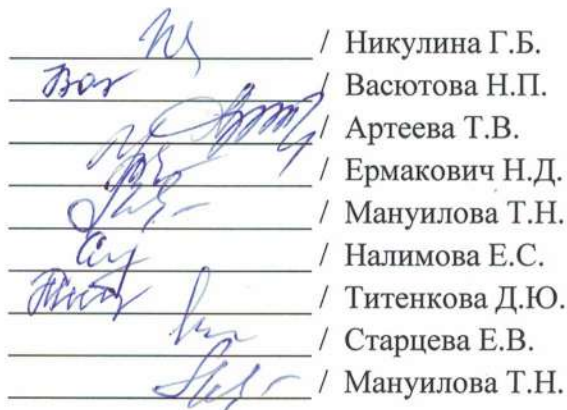 / Никулина Г.Б.
/ Васютова Н.П.
/ Артеева Т.В.
/ Ермакович Н.Д.
/ Мануилова Т.Н.
/ Налимова Е.С.
/ Титенкова Д.Ю.
/ Старцева Е.В.
/ Мануилова Т.Н.